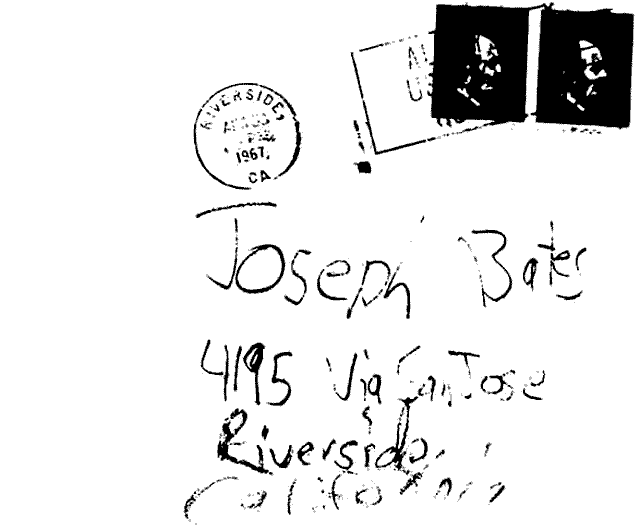 RIVERSIDE,
1967
CA
Joseph Bates
4195 Via San Jose
Riverside,
California